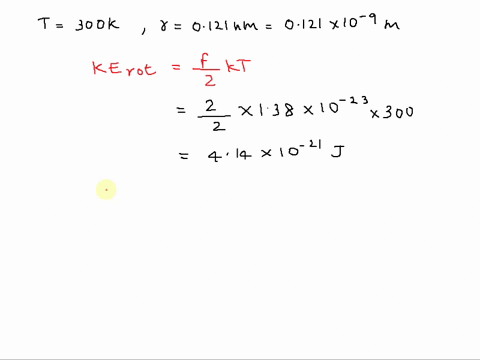 T = 300K , r = 0.121 nm = 0.121 × 10⁻⁹ m
KE rot = f/2 kT
= 2/2 × 1.38 × 10⁻²³ × 300
= 4.14 × 10⁻²¹ J